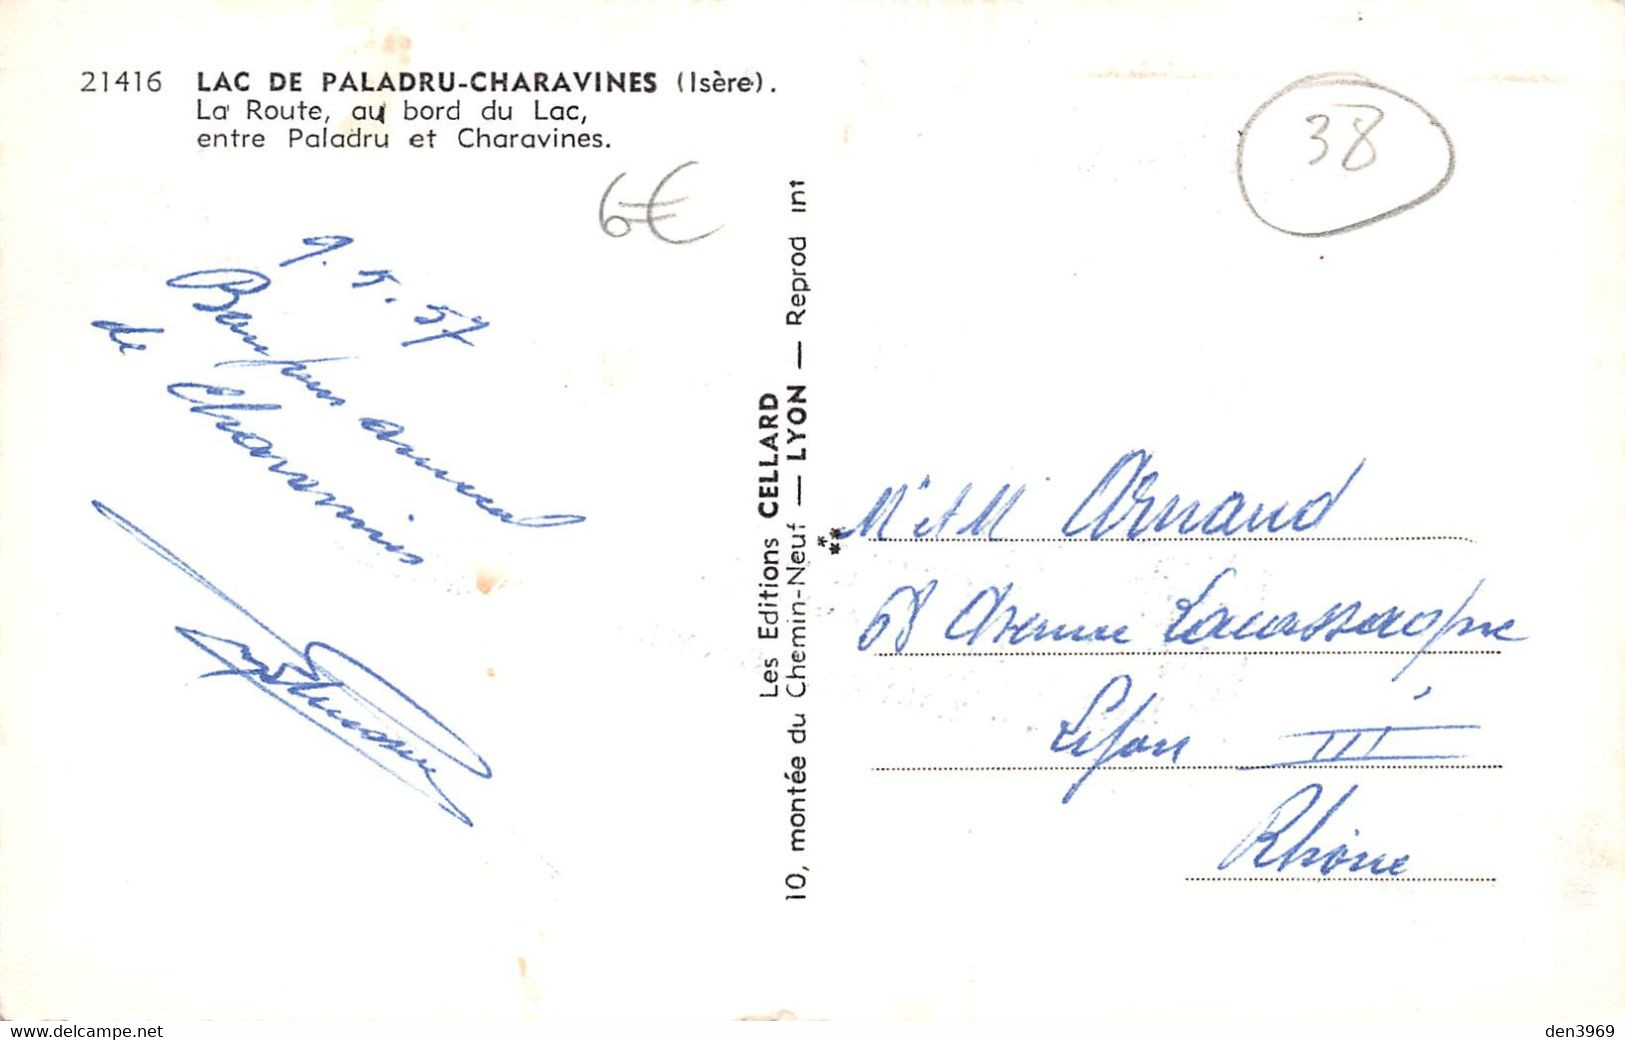 21416 LAC DE PALADRU-CHARAVINES (Isère).
La Route, au bord du Lac,
entre Paladru et Charavines.
6€
38
9.5.57
Bonjour amical
de Charavines
Les Editions CELLARD
10, montée du Chemin-Neuf — LYON — Reprod int
M et M Arnaud
68 Avenue Lacassagne
Lyon III
Rhône
www.delcampe.net
den3969